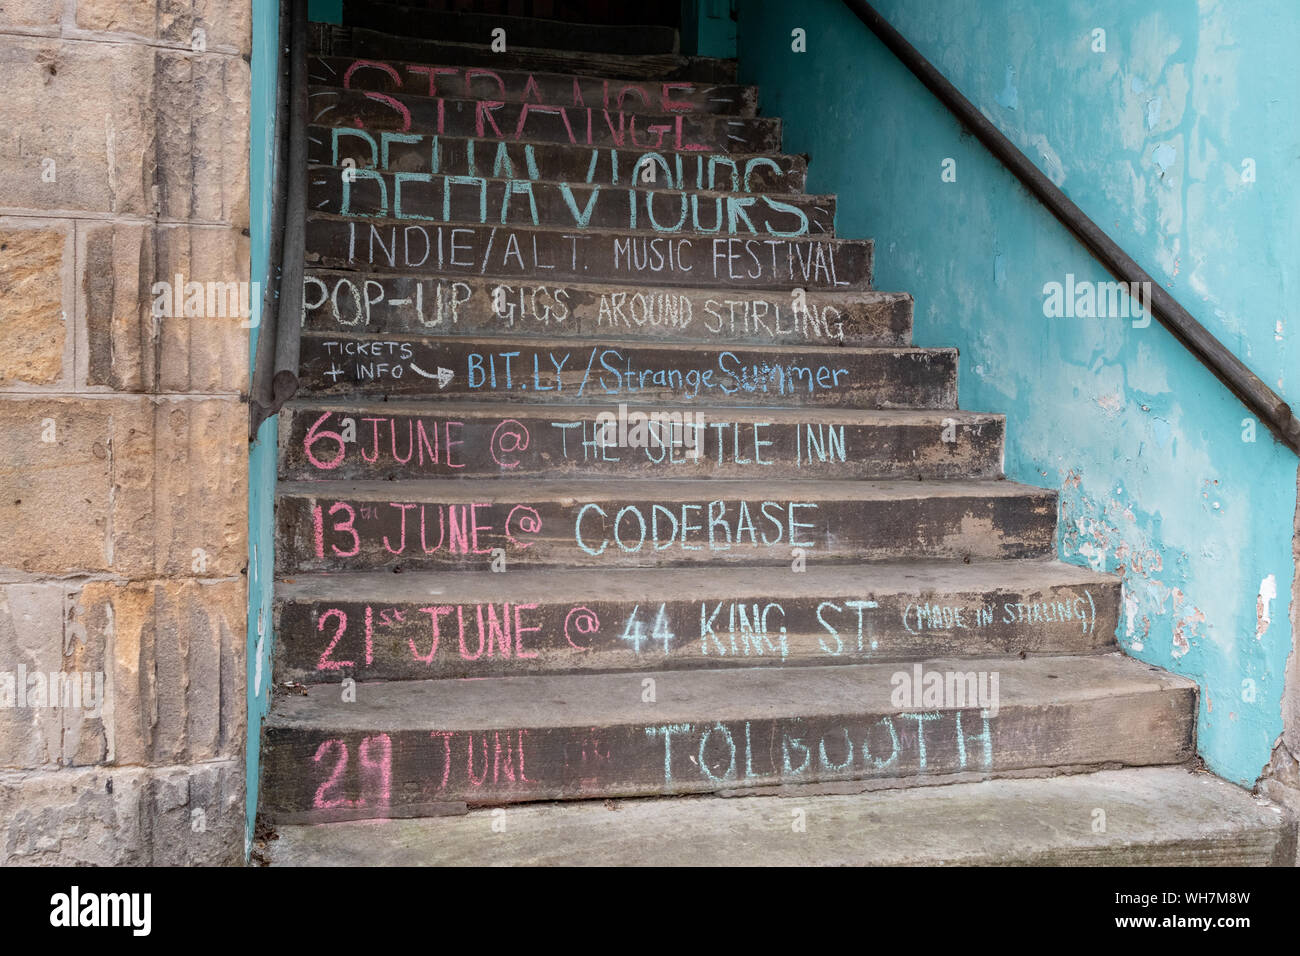 STRANGE
BEHAVIOURS
INDIE/ALT. MUSIC FESTIVAL
POP-UP GIGS AROUND STIRLING
TICKETS
+ INFO
BIT.LY/StrangeSummer
6 JUNE @ THE SETTLE INN
13TH JUNE @ CODEBASE
21ST JUNE @ 44 KING ST. (MADE IN STIRLING)
29 JUNE TOLBOOTH
alamy
Image ID: WH7M8W
www.alamy.com